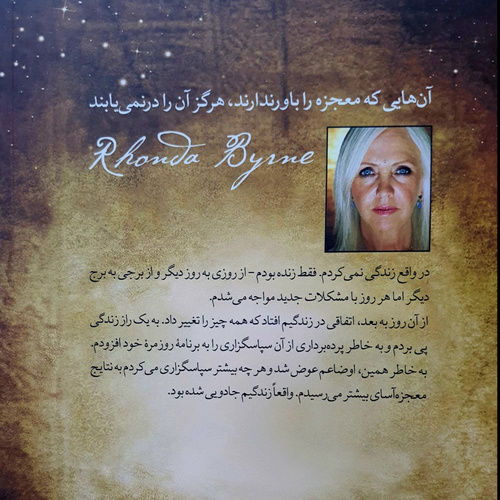 آن‌هایی که معجزه را باور ندارند، هرگز آن را درنمی‌یابند
Rhonda Byrne
در واقع زندگی نمی‌کردم. فقط زنده بودم - از روزی به روز دیگر و از برجی به برج
دیگر اما هر روز با مشکلات جدید مواجه می‌شدم.
از آن روز به بعد، اتفاقی در زندگیم افتاد که همه چیز را تغییر داد. به یک راز زندگی
پی بردم و به خاطر پرده‌برداری از آن سپاسگزاری را به برنامهٔ روزمرهٔ خود افزودم.
به خاطر همین، اوضاعم عوض شد و هر چه بیشتر سپاسگزاری می‌کردم به نتایج
معجزه‌آسای بیشتر می‌رسیدم. واقعاً زندگیم جادویی شده بود.